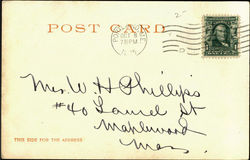 POST CARD
OCT 8
7 30 PM
Mrs. W. H. Phillips
#40 Laurel St
Maplewood
Mass.
THIS SIDE FOR THE ADDRESS